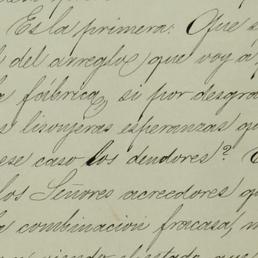 Es la primera: Que s
l del arreglo, que voy á
a fábrica, si por desgra
s lisonjeras esperanzas qu
ese caso los deudores? E
los Señores acreedores q
la combinacion fracasa, m